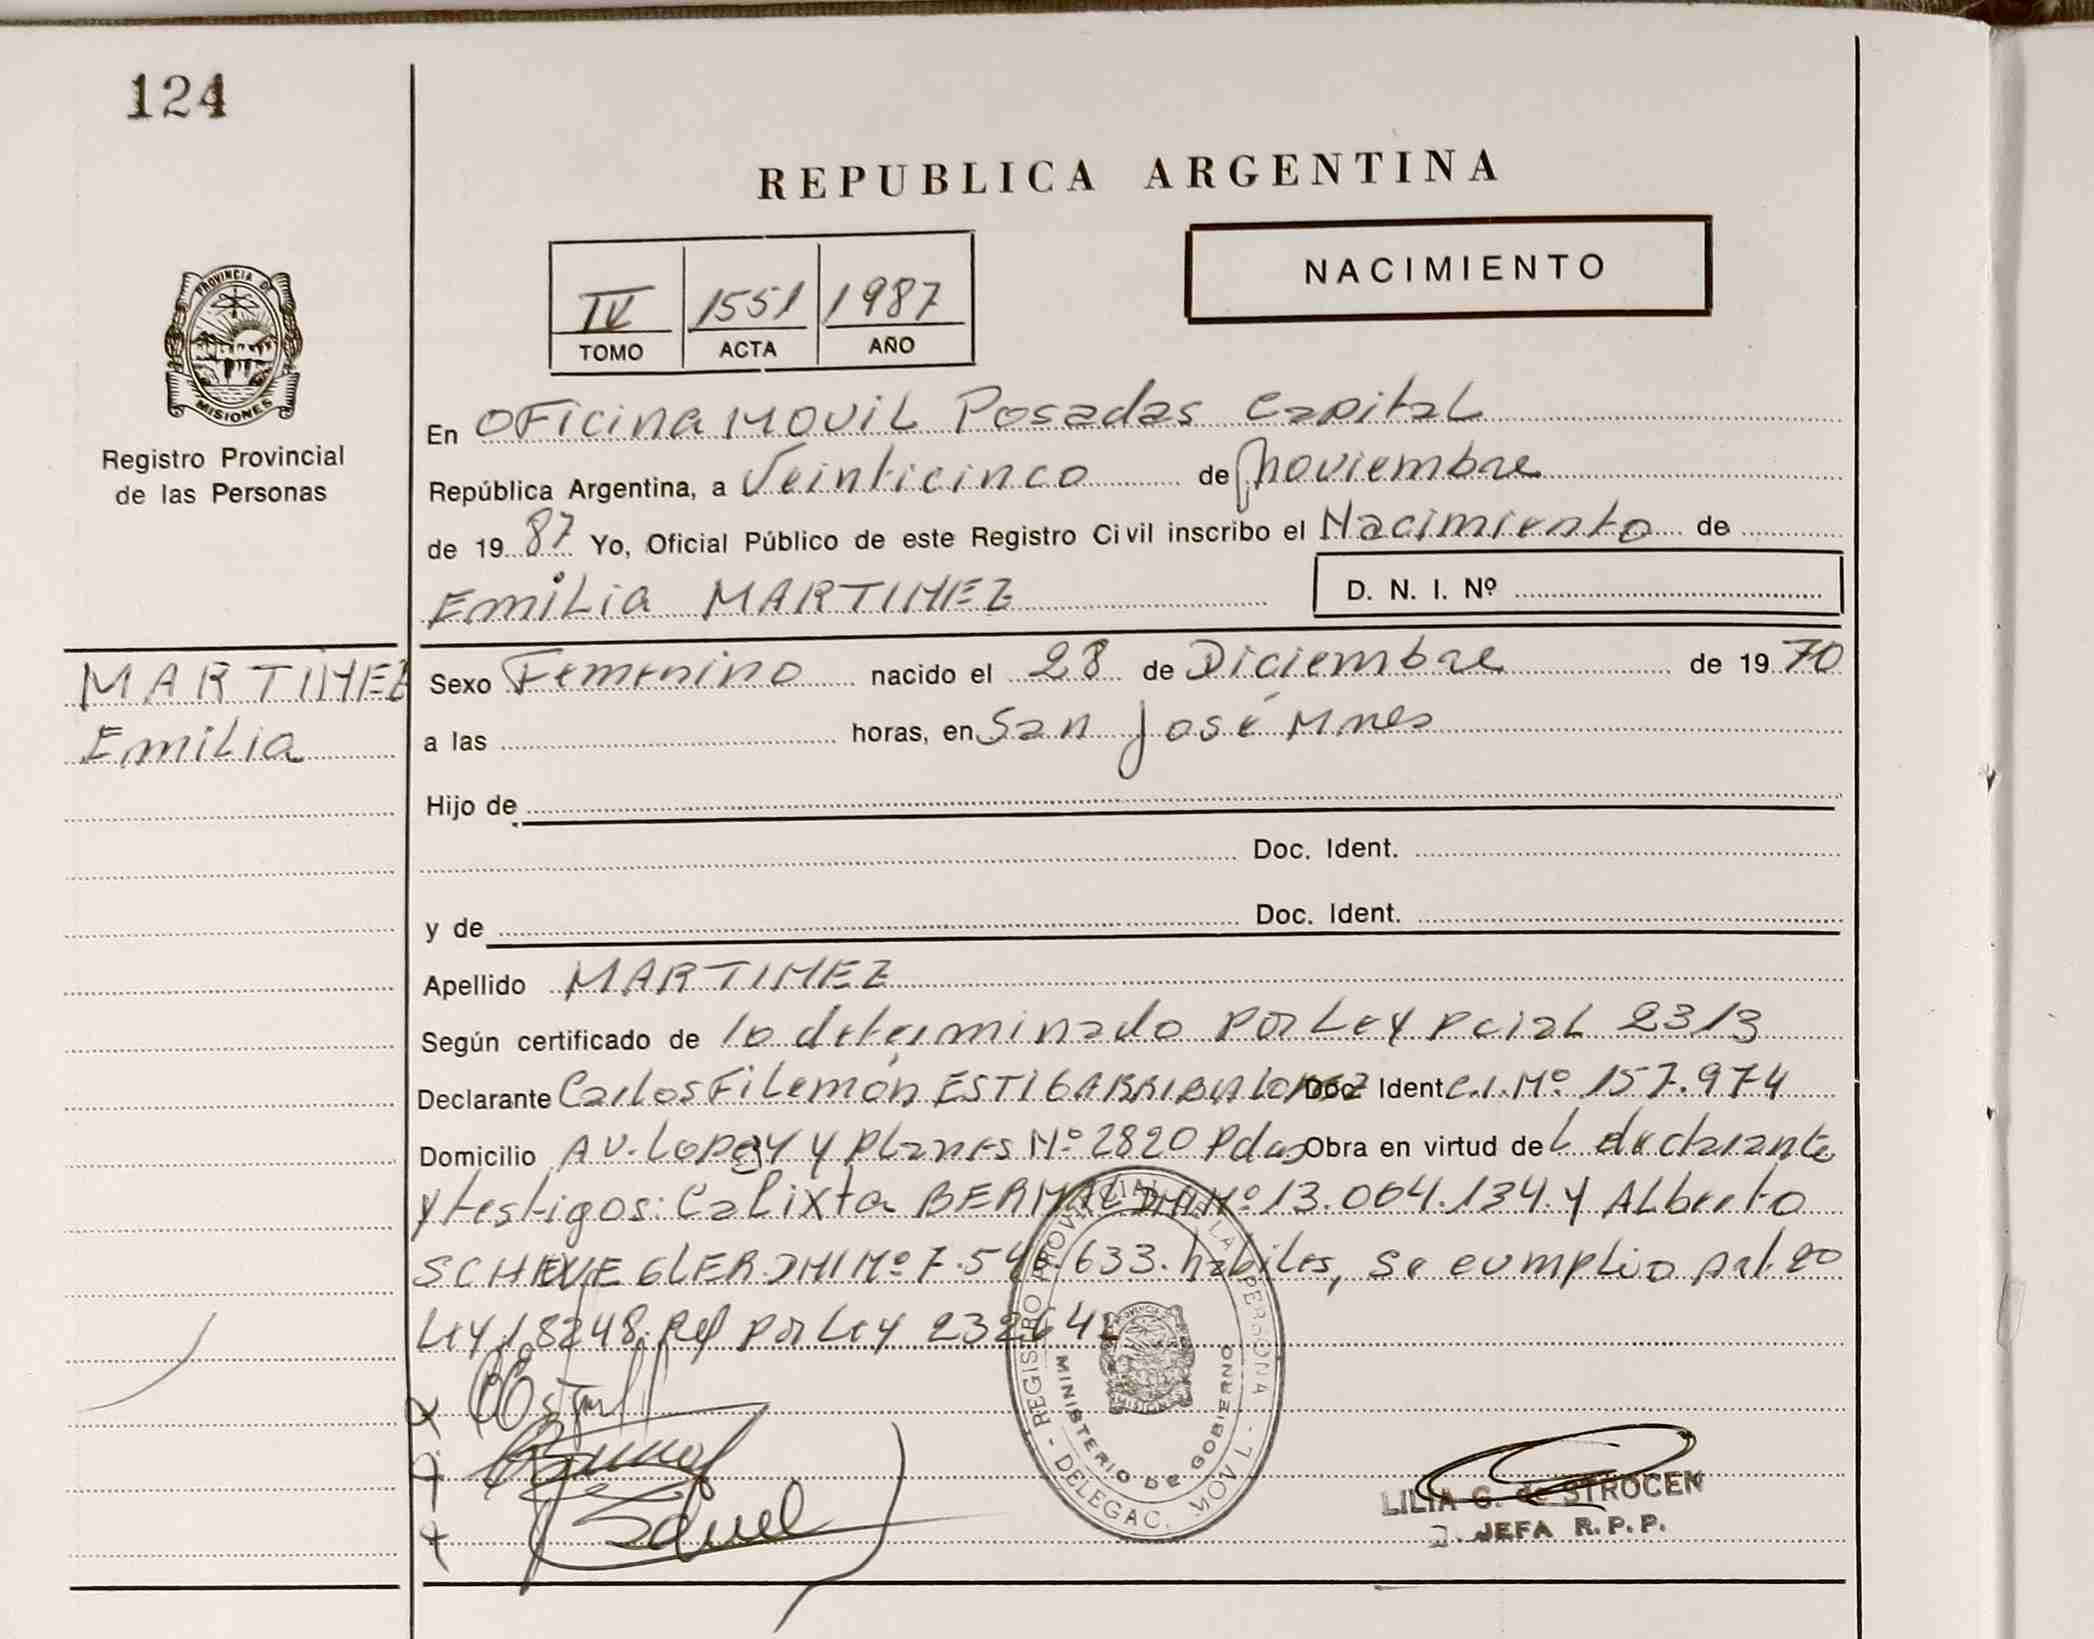 124
REPUBLICA ARGENTINA
NACIMIENTO
IV 1551 1987
TOMO ACTA AÑO
PROVINCIA DE MISIONES
Registro Provincial
de las Personas
En OFicina MOVIL Posadas Capital
República Argentina, a Veinticinco de noviembre
de 1987 Yo, Oficial Público de este Registro Civil inscribo el Nacimiento de
Emilia MARTINEZ D. N. I. Nº
MARTINEZ
Emilia
Sexo Femenino nacido el 28 de Diciembre de 1970
a las horas, en San José Mnes
Hijo de
Doc. Ident.
y de Doc. Ident.
Apellido MARTINEZ
Según certificado de lo determinado por Ley pcial 2313
Declarante Carlos Filemón ESTIGARRIBIA LOPEZ Doc Ident C.I.Nº 157.974
Domicilio AV. Lopez y planes Nº 2820 Pdas Obra en virtud del declarante
y testigos: Calixta BERNAL DNI Nº 13.004.134. y ALberto
SCHEVEGLER DNI Nº 7.54 .633. habiles, se cumplio art. 20
Ley 18248. Ref por Ley 23264
REGISTRO PROVINCIAL DE LA PERSONA - DELEGAC. MOVIL -
MINISTERIO DE GOBIERNO
LILIA G. de STROCEN
JEFA R.P.P.